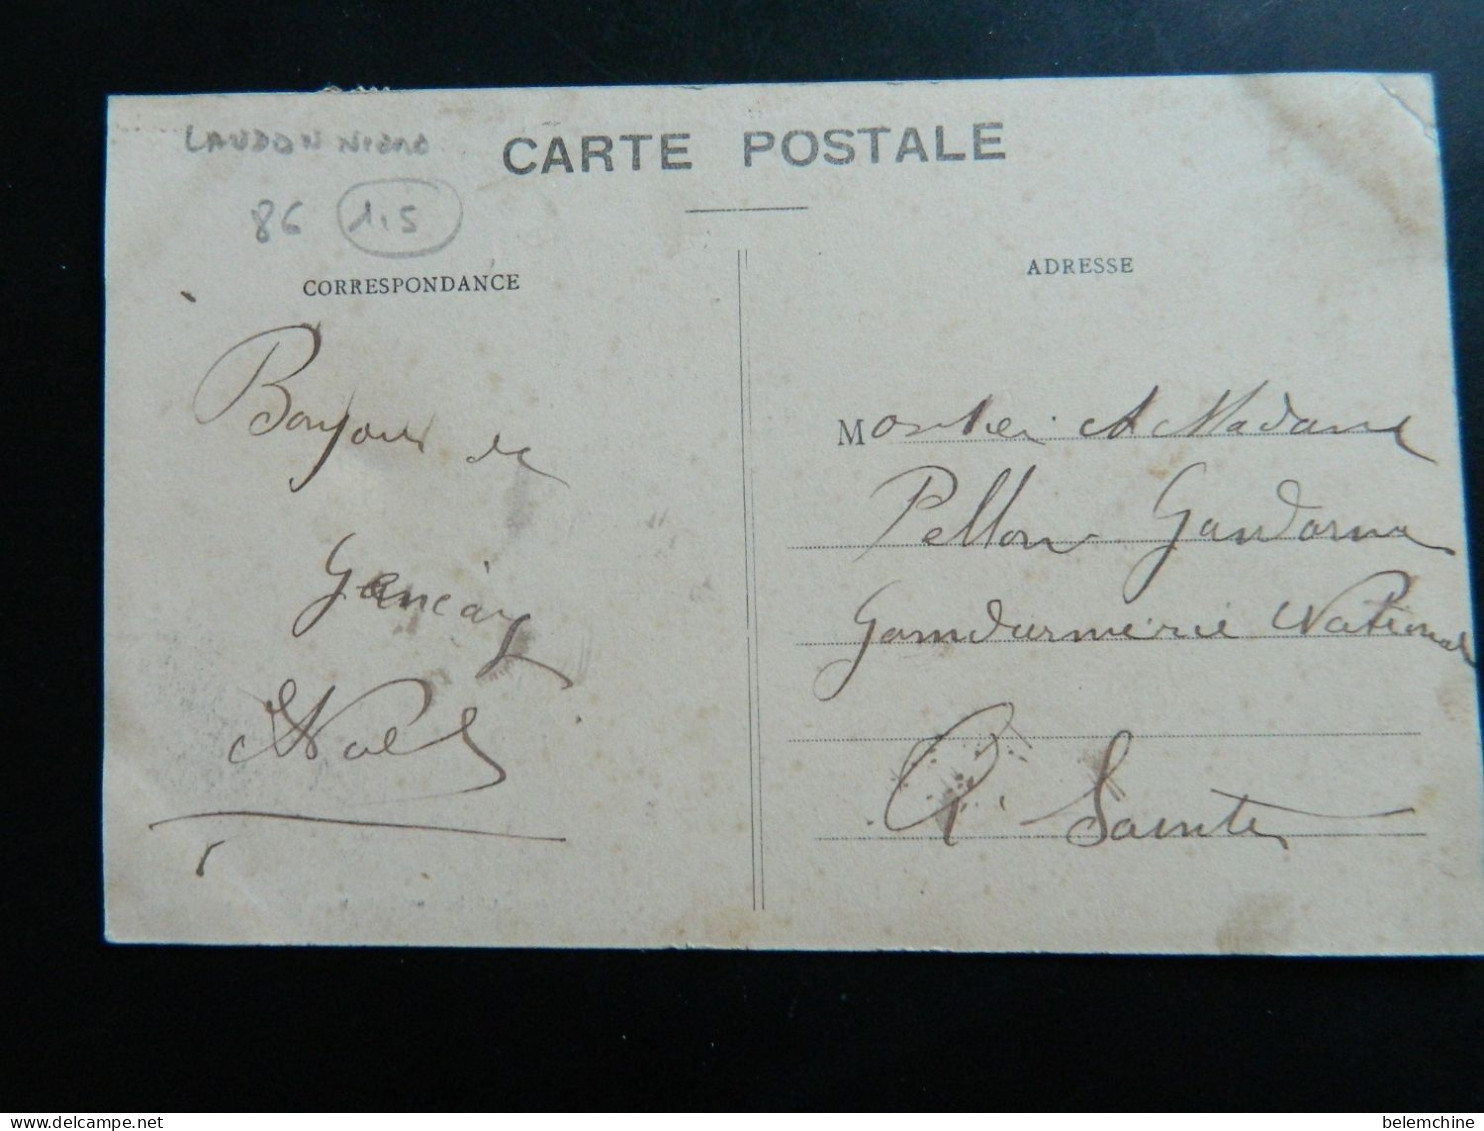 LAUDONNIERE
86 1,5
CARTE POSTALE
CORRESPONDANCE
ADRESSE
Bonjour de
Gencay
Noël
Monsieur et Madame
Pellon Gendarme
Gendarmerie National
à Sainte
delcampe.net
belemchine